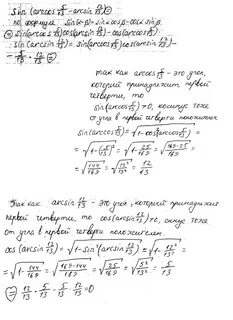 sin(arccos 5/13 - arcsin 12/13) =
по формуле sin(α-β) = sinα cosβ - cosα sinβ
= sin(arccos 5/13) cos(arcsin 12/13) - cos(arccos 5/13)
· sin(arcsin 12/13) = sin(arccos 5/13) cos(arcsin 12/13) -
- 5/13 · 12/13 =
так как arccos 5/13 - это угол,
который принадлежит первой
четверти, то
sin(arccos 5/13) > 0, косинус тоже
от угла в первой четверти положителен
sin(arccos 5/13) = √(1 - cos²(arccos 5/13)) =
= √(1 - (5/13)²) = √(1 - 25/169) = √((169-25)/169) =
= √(144/169) = √(12²/13²) = 12/13
Так как arcsin 12/13 - это угол, который принадлежит
первой четверти, то cos(arcsin 12/13) > 0, синус тоже
от угла в первой четверти положителен.
cos(arcsin 12/13) = √(1 - sin²(arcsin 12/13)) = √(1 - 12²/13²) =
= √(1 - 144/169) = √((169-144)/169) = √(25/169) = √(5²/13²) = 5/13
= 12/13 · 5/13 - 5/13 · 12/13 = 0